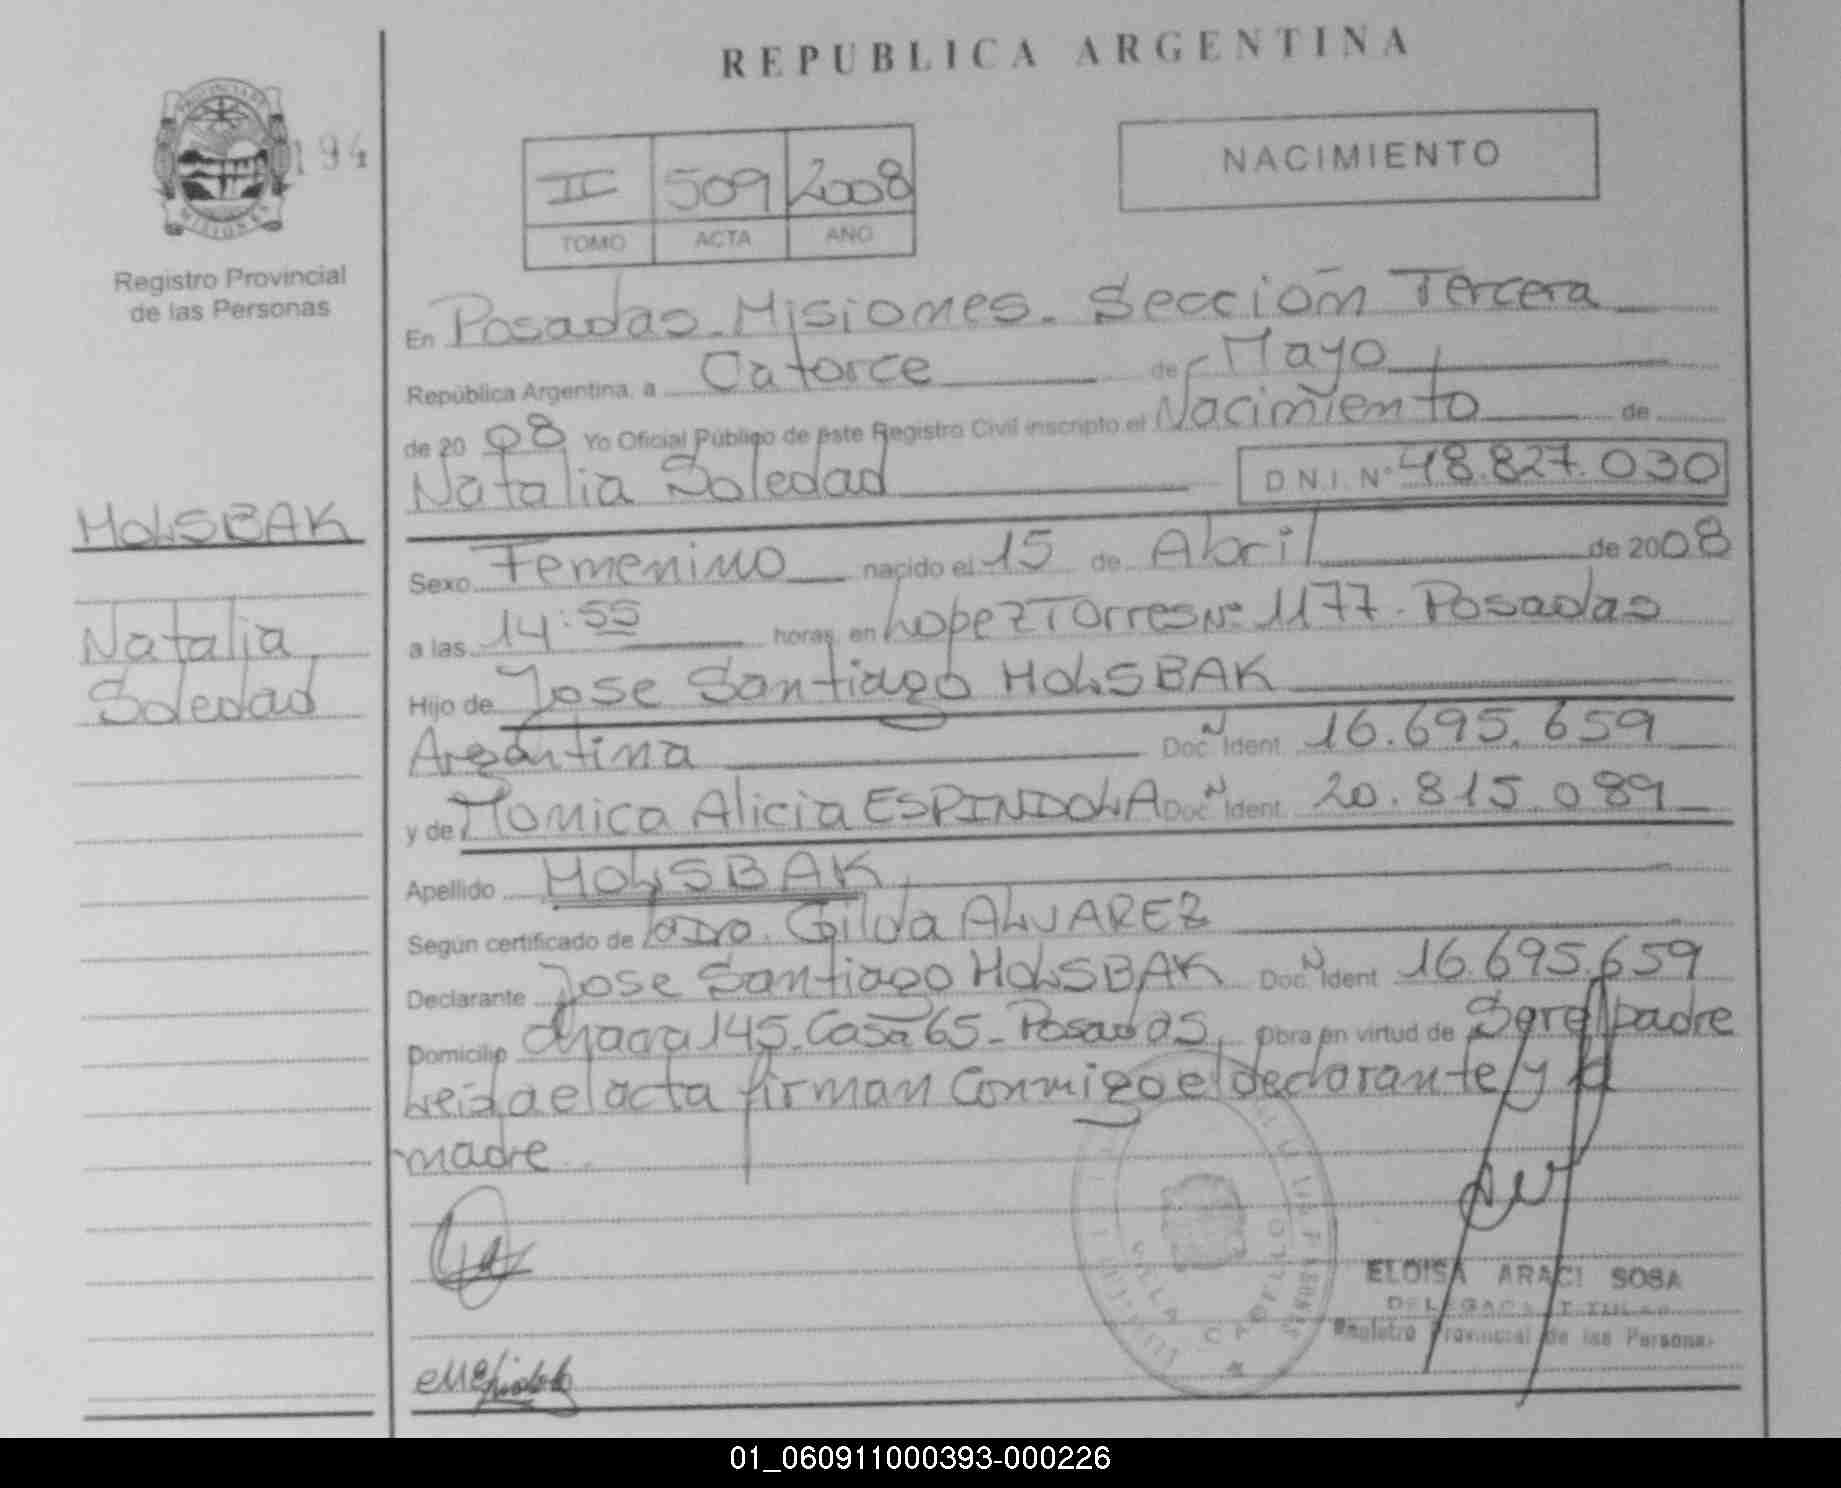 REPUBLICA ARGENTINA
PROVINCIA DE
MISIONES
194
Registro Provincial
de las Personas
II 509 2008
TOMO ACTA AÑO
NACIMIENTO
En Posadas - Misiones - Sección Tercera
República Argentina, a Catorce de Mayo
de 2008 Yo Oficial Público de este Registro Civil inscripto el Nacimiento de
Natalia Soledad D.N.I. Nº 48.827.030
HOLSBAK
Natalia
Soledad
Sexo Femenino nacido el 15 de Abril de 2008
a las 14:55 horas, en Lopez Torres Nº 1177 - Posadas
Hijo de Jose Santiago HOLSBAK
Argentina Doc. Ident. 16.695.659
y de Monica Alicia ESPINDOLA Doc. Ident. 20.815.089
Apellido HOLSBAK
Según certificado de la Dra. Gilda ALVAREZ
Declarante Jose Santiago HOLSBAK Doc. Ident. 16.695.659
Domicilio Chacra 145 - Casa 65 - Posadas Obra en virtud de Ser el padre
Leida el acta firman conmigo el declarante y la
madre
ELOISA ARACI SOSA
DELEGADA TITULAR
Registro Provincial de las Personas
01_060911000393-000226